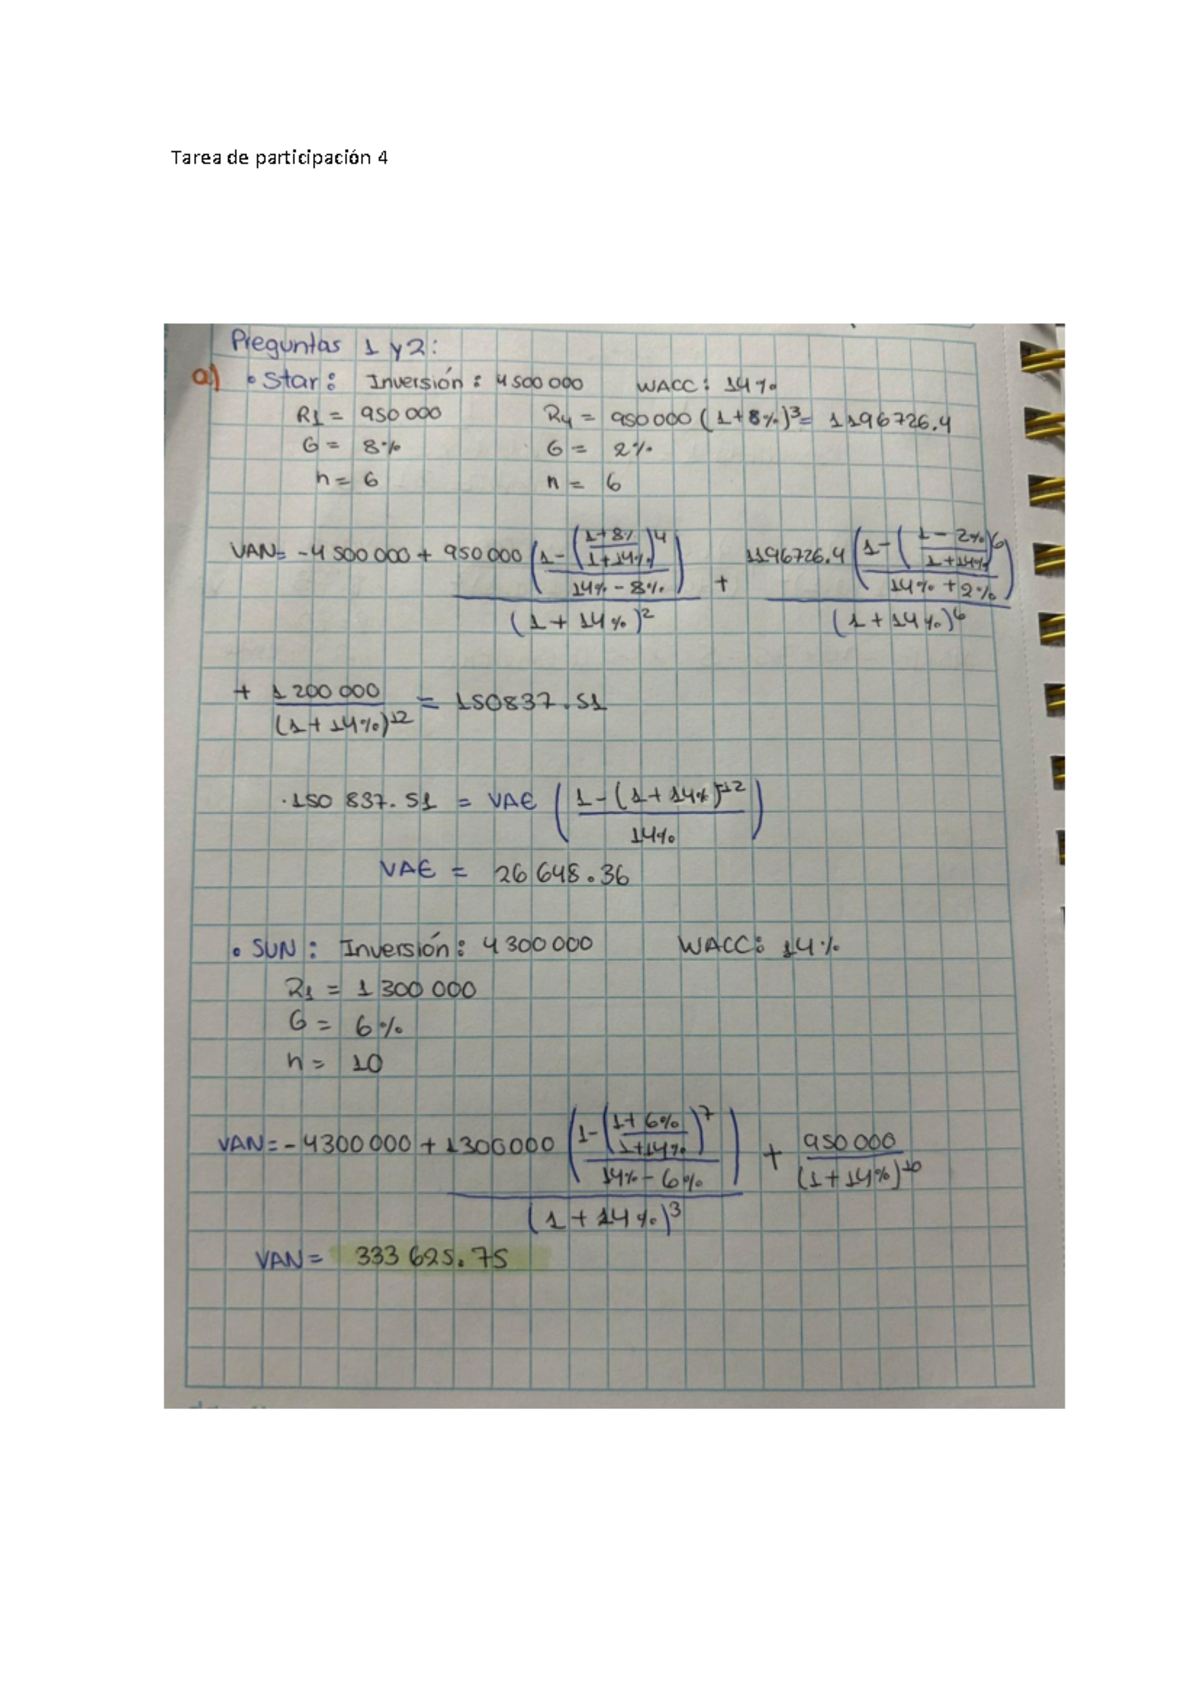 Tarea de participación 4
Preguntas 1 y 2:
a) • Star: Inversión: 4 500 000 WACC: 14%
R1 = 950 000 R4 = 950 000 (1+8%)^3 = 1196726.4
G = 8% G = 2%
n = 6 n = 6
VAN = -4 500 000 + 950 000 (1-((1+8%)/(1+14%))^4 / (14% - 8%)) / (1+14%)^2 + 1196726.4 (1-((1-2%)/(1+14%))^6 / (14% + 2%)) / (1+14%)^6
+ 1 200 000 / (1+14%)^12 = 150837.51
150 837.51 = VAE ((1-(1+14%)^-12) / 14%)
VAE = 26 648.36
• SUN: Inversión: 4 300 000 WACC: 14%
R1 = 1 300 000
G = 6%
n = 10
VAN = -4300 000 + 1300000 (1-((1+6%)/(1+14%))^7 / (14% - 6%)) / (1+14%)^3 + 950 000 / (1+14%)^10
VAN = 333 625.75